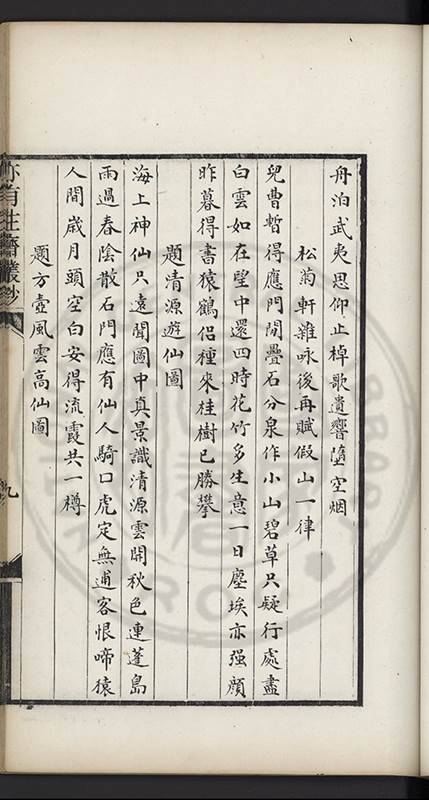 舟泊武夷思仰止棹歌遺響墮空烟
松菊軒雜咏後再賦假山一律
兒曹暫得應門閒疊石分泉作小山碧草只疑行處盡
白雲如在望中還四時花竹多生意一日塵埃亦强顔
昨暮得書猿鶴侣種來桂樹已勝攀
題清源遊仙圖
海上神仙只遠聞圖中真景識清源雲開秋色連蓬島
雨過春陰散石門應有仙人騎口虎定無逋客恨啼猿
人間歲月頭空白安得流霞共一樽
題方壺風雲高仙圖
亦有生齋叢鈔
九